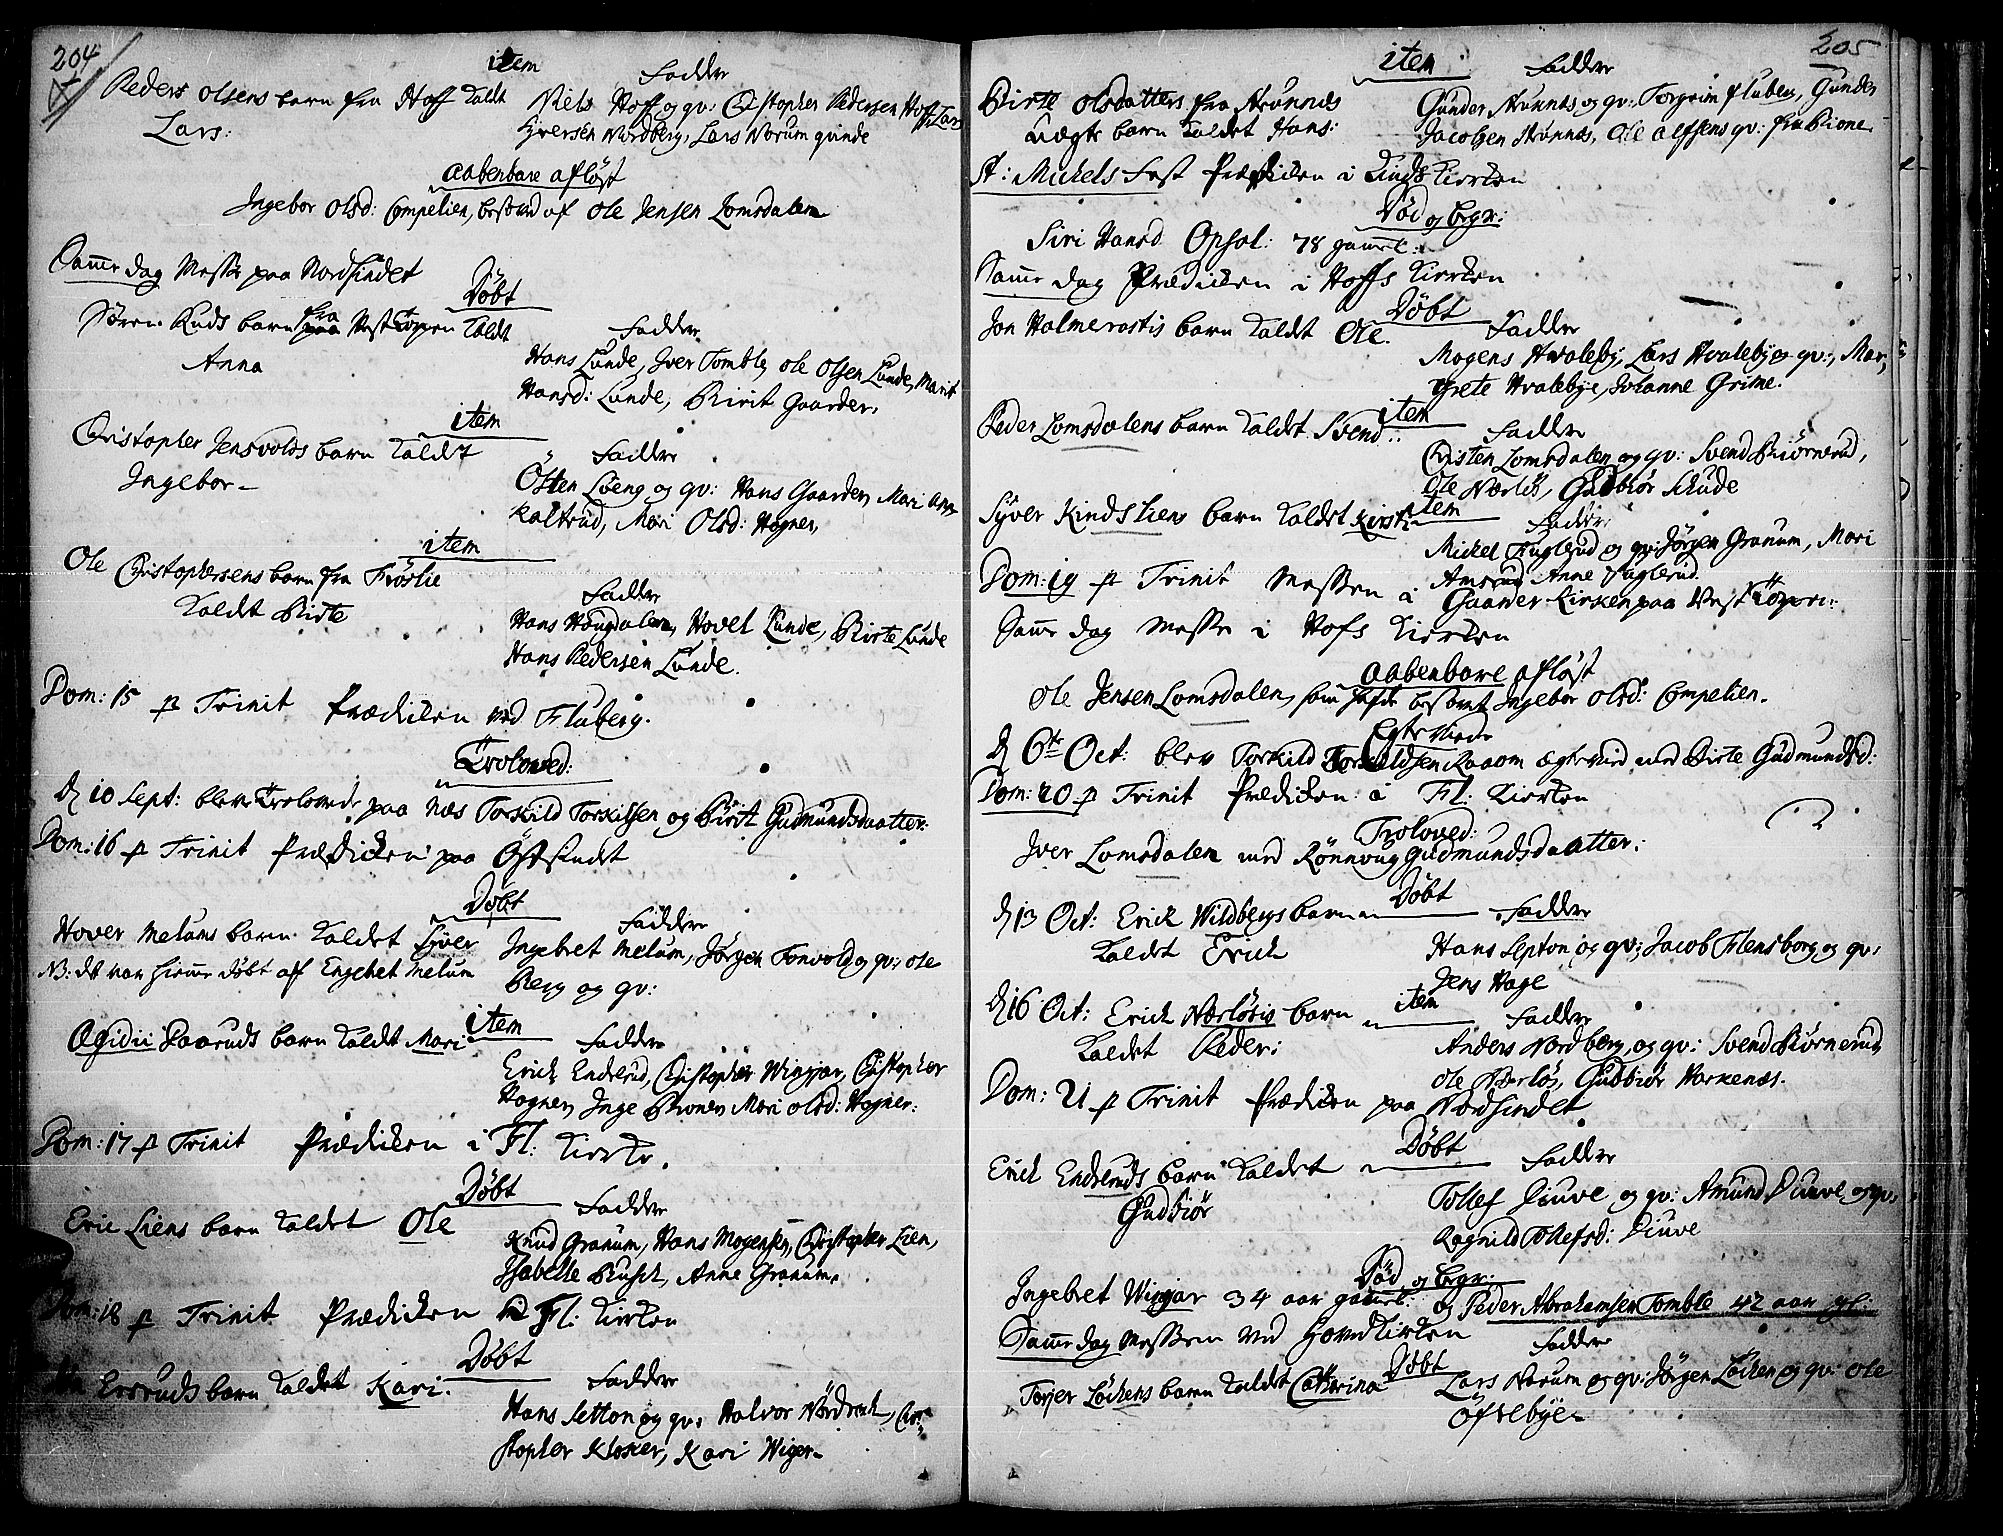 204
item
Peders Olsens barn fra Hoff kaldt
Lars:
Faddre
Niels Hoff og qv: Christopher Pedersen Hoff, Lars
Iversen Nordberg, Lars Norum qvinde
aabenbare afløst
Ingebor Olsd: Compelien, besovd af Ole Jensen Lomsdalen
Samme dag Messe paa Nordsindet
Døbt
Søren Ruds barn fra Vest Torpen kaldt
Anna
Faddre
Hans Lunde, Iver Tomble, Ole Olsen Lunde, Marit
Hansd: Lunde, Birit Gaarder.
item
Christopher Jensvolds barn kaldt
Ingebor
Faddre
Østen Løeng og qv: Hans Gaarder, Mari
Kaltrud, Mari Olsd: Hogner,
item
Ole Christophersens barn fra Frøslie
kaldt Birte
Faddre
Hans Hougdalen, Hovel Lunde, Birte Lunde
Hans Pedersen Lunde.
Dom: 15 p Trinit Prædiken ved Fluberg.
Troloved:
d 10 Sept: blev Trolovede paa Næs Torkild Torkilsen og Birit Gudmundsdaatter.
Dom: 16 p Trinit Prædiken paa Østsindet
Døbt
Hover Melums barn kaldet Syver
NB: det var hiemme døbt af Engebet Melum
Faddre
Ingebret Melum, Jørgen Tonvold og qv: Ole
Berg og qv:
item
Ægidii Paaruds barn kaldt Mari
Faddre
Erich Enderud, Christopher Wingjar, Christopher
Hogner, Inge Bioner, Mari Olsd: Hogner:
Dom: 17 p Trinit Prædiken i Fl: Kirke.
Døbt
Eric Liens barn kaldet Ole
Faddre
Knud Granum, Hans Mogensen, Christopher Lien,
Isabelle Ruset, Anne Granum.
Dom: 18 p Trinit Prædiken Fl: Kirken
Døbt
barn kaldet Kari.
Faddre
Hans Setton og qv: Halvor Nordraak, Chri
stopher Klosker, Kari Wiger
205
item
Birte Olsdatters fra Strønnæs
Uægte barn kaldet Hans:
Faddre
Gunder Strønnæs og qv: Torgrim Fluberg, Gunder
Jacobsen Strønnæs, Ole Alfsens qv: fra Bione
St: Michels Fest Prædiken i Lunds Kirken
Død og begr:
Siri Hansd Opsal: 78 gammel:
Samme dag Prædiken i Hoffs Kirken
Døbt
Jon Halmerastis barn kaldet Ole.
Faddre
Mogens Hvaleby, Lars Hvalebye og qv:, Mar
grete Hvalebye, Johanne Grime.
item
Peder Lomsdalens barn kaldet Svend:
Faddre
Christen Lomsdalen og qv: Svend Biørnerud,
Ole Nærløs, Gudbiør Skude
item
Syver Kindsliens barn kaldet Kirsti
Faddre
Mickel Fuglerud og qv: Jørgen Granum, Mari
Amsrud Anne Fuglerud
Dom: 19 p Trinit Messen i Gaarder Kirken paa Vest Torpen:
Samme dag Messe i Hofs Kirken
aabenbare afløst
Ole Jensen Lomsdalen, som hafde besovet Ingebor Olsd: Compelien.
Egteviede
d 6te Oct: blev Torkild Torkildsen Raaom ægteviet med Birte Gudmundsd:
Dom: 20 p Trinit Prædiken i Fl: Kirken
Troloved:
Iver Lomsdalen med Rønnoug Gudmundsdaatter.
Døbt
d 13 Oct: Erich Wildbergs barn
kaldet Erich
Faddre
Hans Septon og qv: Jacob Flensborg og qv:
Jens Hage
item
d 16 Oct: Erich Nærløsis barn
kaldet Peder:
Faddre
Anders Nordberg, og qv: Svend Biørnerud
Ole Nærløs, Gudbiør Harkenæs.
Dom: 21 p Trinit Prædiken paa Nordsindet
Døbt
Erich Enderuds barn kaldet
Gudbiør
Faddre
Tollef Diuve og qv: Amund Diuve og qv:
Ragnild Tollefsd: Diuve
Død og begr:
Ingebret Wigjar 34 aar gammel: og Peder Abrahamsen Tomble 42 aar gl:
Samme dag Messen ved Hovedkirken
Døbt
Torjer Løckens barn kaldet Catharina
Faddre
Lars Norum og qv: Jørgen Løcken og qv: Ole
Øfstebye